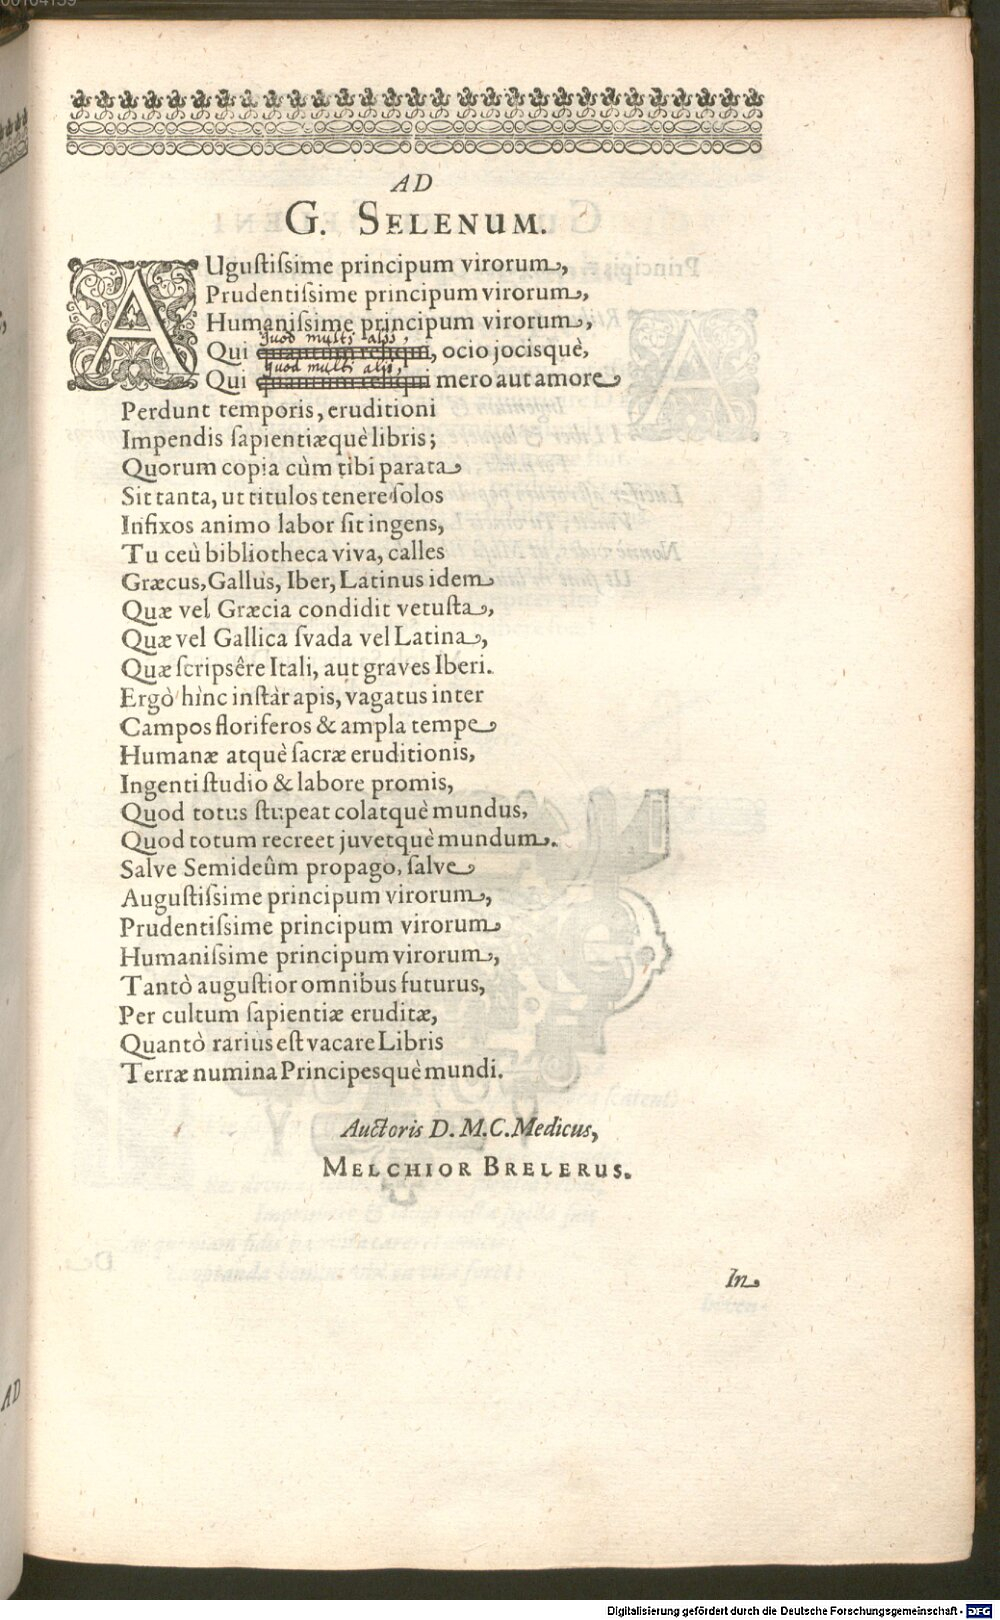 AD
G. SELENUM.
AUguſtiſsime principum virorum,
Prudentiſsime principum virorum,
Humaniſsime principum virorum,
quod multi alij,
Qui quantum reliqui, ocio jocisquè,
quod multi alij,
Qui quantum reliqui mero aut amore
Perdunt temporis, eruditioni
Impendis ſapientiæquè libris;
Quorum copia cùm tibi parata
Sit tanta, ut titulos tenere ſolos
Infixos animo labor ſit ingens,
Tu ceù bibliotheca viva, calles
Græcus, Gallus, Iber, Latinus idem
Quæ vel Græcia condidit vetuſta,
Quæ vel Gallica ſvada vel Latina,
Quæ ſcripsêre Itali, aut graves Iberi.
Ergò hìnc inſtàr apis, vagatus inter
Campos floriferos & ampla tempe
Humanæ atquè ſacræ eruditionis,
Ingenti ſtudio & labore promis,
Quod totus ſtupeat colatquè mundus,
Quod totum recreet juvetquè mundum.
Salve Semideûm propago, ſalve
Auguſtiſsime principum virorum,
Prudentiſsime principum virorum
Humaniſsime principum virorum,
Tantò auguſtior omnibus futurus,
Per cultum ſapientiæ eruditæ,
Quantò rarius eſt vacare Libris
Terræ numina Principesquè mundi.
Auctoris D. M. C. Medicus,
MELCHIOR BRELERUS.
In
AD
Digitalisierung gefördert durch die Deutsche Forschungsgemeinschaft - DFG